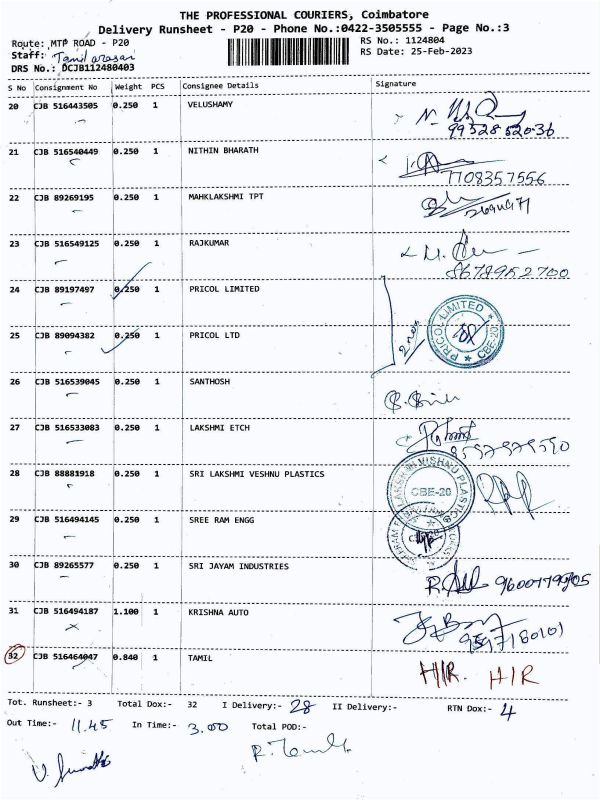 THE PROFESSIONAL COURIERS, Coimbatore
Delivery Runsheet - P20 - Phone No.:0422-3505555 - Page No.:3
Route: MTP ROAD - P20 RS No.: 1124804
Staff: Tamilarasan RS Date: 25-Feb-2023
DRS No.: DCJB112480403
S No Consignment No Weight PCS Consignee Details Signature
20 CJB 516443505 0.250 1 VELUSHAMY
9952852036
21 CJB 516540449 0.250 1 NITHIN BHARATH
7708357556
22 CJB 89269195 0.250 1 MAHKLAKSHMI TPT
23 CJB 516549125 0.250 1 RAJKUMAR
8678952700
24 CJB 89197497 0.250 1 PRICOL LIMITED
PRICOL LIMITED CBE-20
2 nos
25 CJB 89094382 0.250 1 PRICOL LTD
26 CJB 516539045 0.250 1 SANTHOSH
27 CJB 516533083 0.250 1 LAKSHMI ETCH
28 CJB 88881918 0.250 1 SRI LAKSHMI VESHNU PLASTICS
LAKSHMI VISHNU PLASTIC CBE-20
29 CJB 516494145 0.250 1 SREE RAM ENGG
30 CJB 89265577 0.250 1 SRI JAYAM INDUSTRIES
31 CJB 516494187 1.100 1 KRISHNA AUTO
32 CJB 516464047 0.840 1 TAMIL H/R. H/R
Tot. Runsheet:- 3 Total Dox:- 32 I Delivery:- 28 II Delivery:- RTN Dox:- 4
Out Time:- 11.45 In Time:- 3.00 Total POD:-